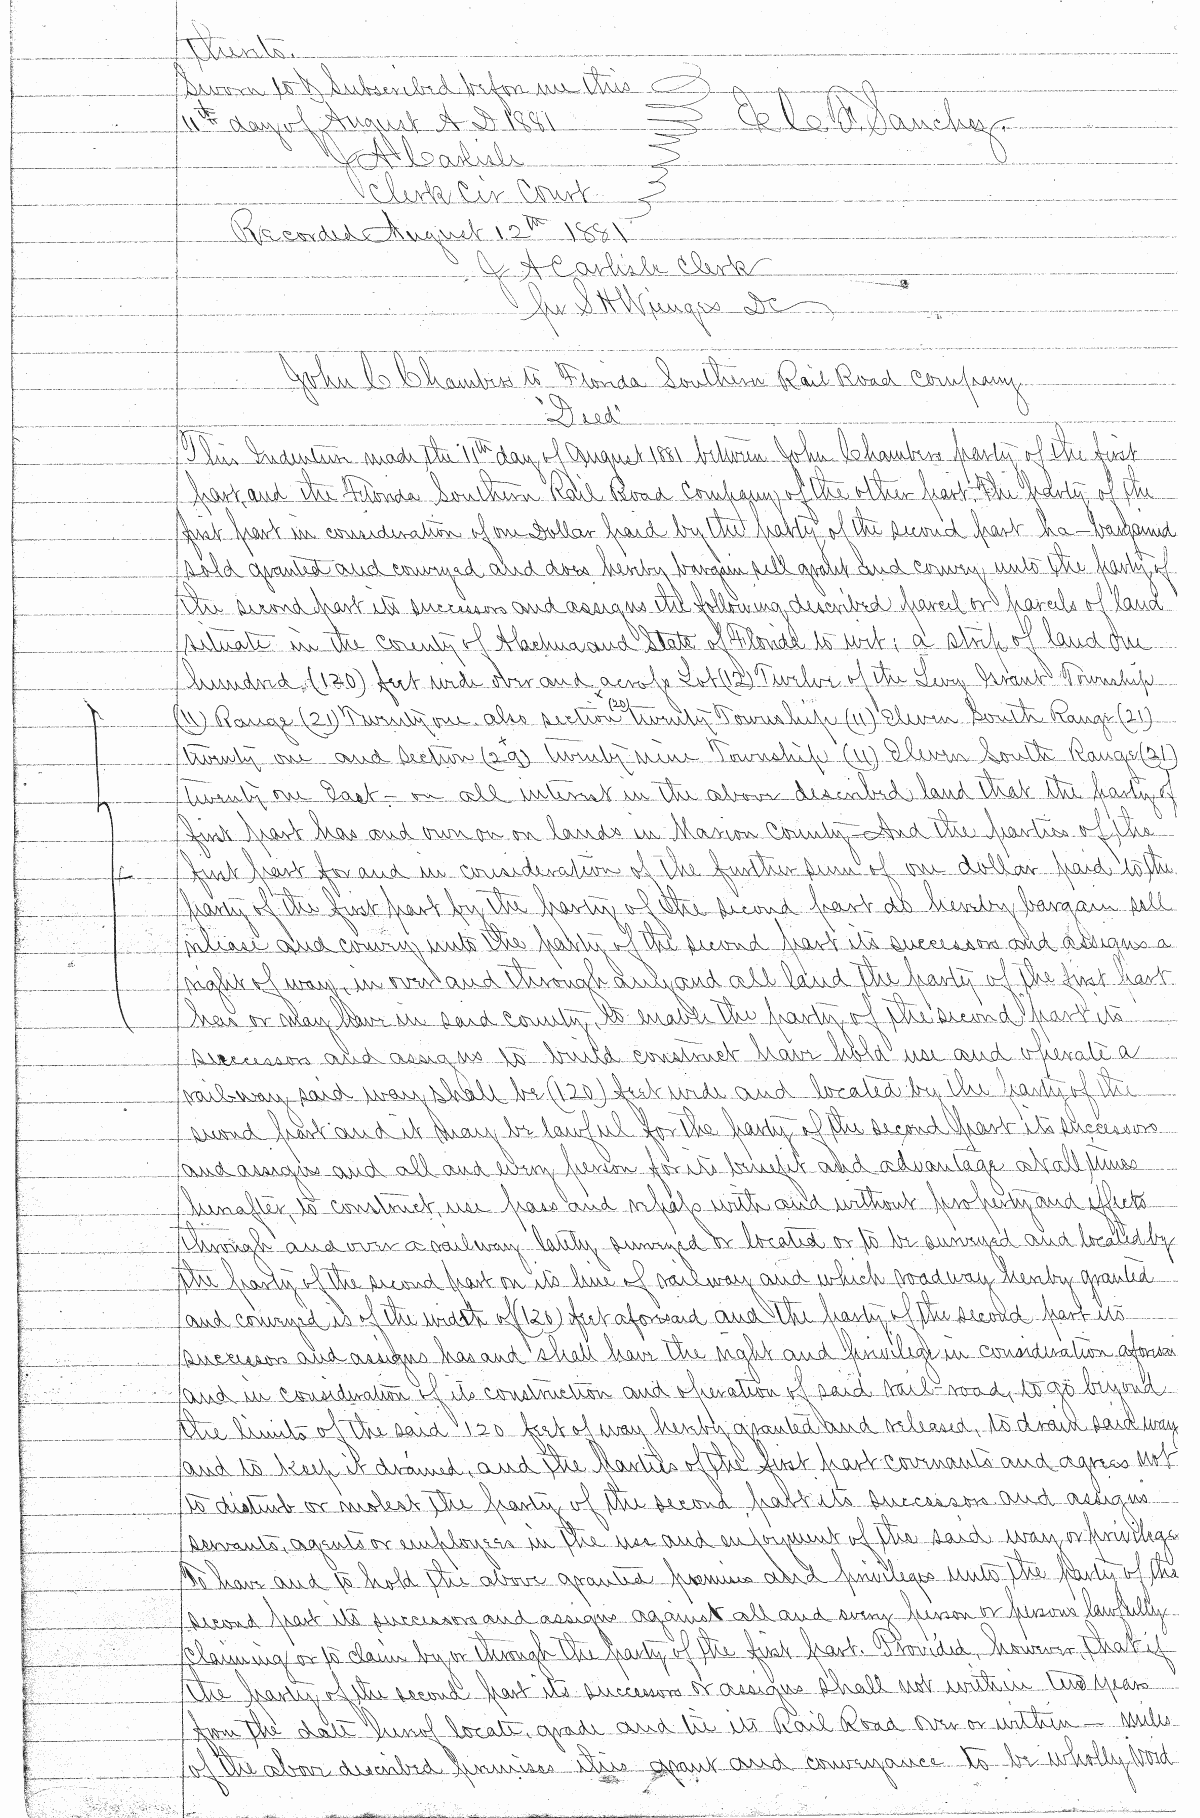 thirds.
Sworn to & Subscribed before me this
11th day of August A D 1881
E C F Sanchez.
J A Carlisle
Clerk Cir Court
Recorded August 12th 1881
J A Carlisle Clerk
per S H Wienges DC
John C Chambers to Florida Southern Rail Road Company
"Deed"
This Indenture made the 11th day of August 1881 between John Chambers party of the first
part, and the Florida Southern Rail Road Company of the other part. The party of the
first part in consideration of one Dollar paid by the party of the second part ha— bargained
sold granted and conveyed and does hereby bargain sell grant and convey unto the party of
the second part its successors and assigns the following described parcel or parcels of land
situate in the county of Alachua and State of Florida to wit; a strip of land One
hundred (120) feet wide over and across Lot (12) Twelve of the Levy Grant Township
(11) Range (21) Twenty one also section (20) twenty Township (11) Eleven South Range (21)
twenty one and section (29) twenty nine Township (11) Eleven South Range (21)
twenty one East — on all interest in the above described land that the party of
first part has and own on on lands in Marion County — And the parties of the
first part for and in consideration of the further sum of one dollar paid to the
party of the first part by the party of the second part do hereby bargain sell
release and convey unto the party of the second part its successors and assigns a
right of way, in over and through any and all land the party of the first part
has or may have in said county, to enable the party of the second part its
successors and assigns to build construct have hold use and operate a
railway, said way shall be (120) feet wide and located by the party of the
second part and it may be lawful for the party of the second part its successors
and assigns and all and every person for its benefit and advantage at all times
hereafter, to construct, use pass and repass with and without property and effects
through and over a railway lately surveyed or located or to be surveyed and located by
the party of the second part on its line of railway and which roadway hereby granted
and conveyed is of the width of (120) feet aforesaid and the party of the second part its
successors and assigns has and shall have the right and privilege in consideration aforesaid
and in consideration of its construction and operation of said rail-road, to go beyond
the limits of the said 120 feet of way hereby granted and released, to drain said way
and to keep it drained, and the parties of the first part covenants and agrees not
to disturb or molest the party of the second part its successors and assigns
servants, agents or employees in the use and enjoyment of the said way or privilege
To have and to hold the above granted premises and privileges unto the party of the
second part its successors and assigns against all and every person or persons lawfully
claiming or to claim by or through the party of the first part. Provided, however, that if
the party of the second part its successors or assigns shall not within two years
from the date hereof locate, grade and tie its Rail Road over or within — miles
of the above described premises this grant and conveyance to be wholly void